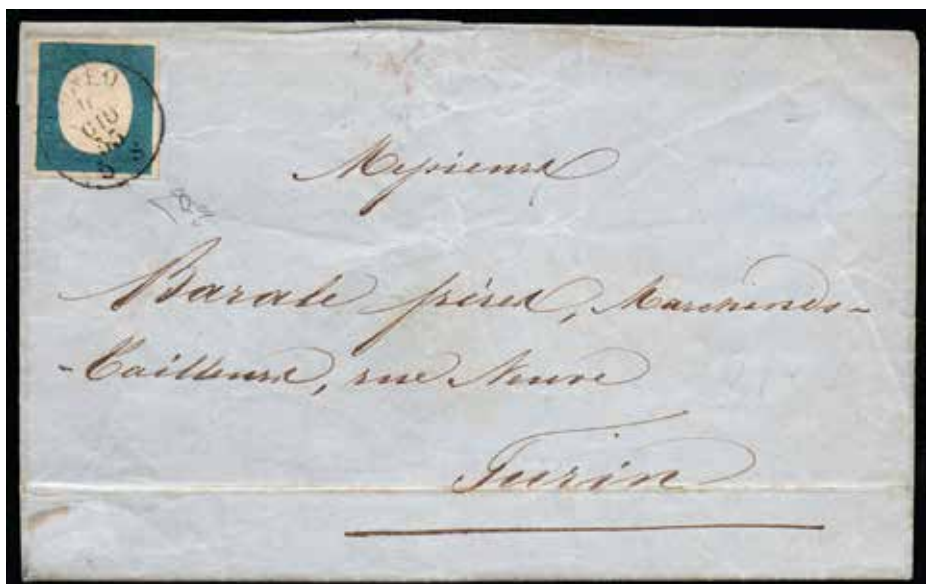 GIU
55
Messieurs
Barale frères, Marchands-
-Tailleurs, rue Neuve
Turin